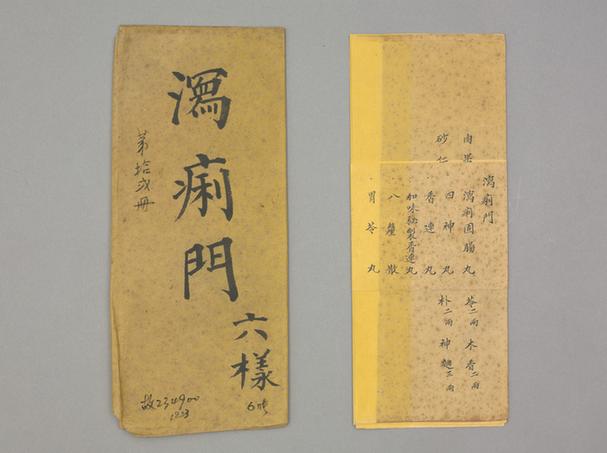 瀉痢門
六樣
第拾弍冊
故234900
瀉痢門
肉果 瀉痢固腸丸 苓二兩 木香二兩
砂仁 四神丸 朴二兩 神麯三兩
香連丸
加味秘製香連丸
八釐散
胃苓丸